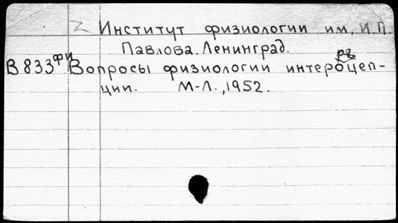 Институт физиологии им. И.П.
Павлова. Ленинград.
В833фи Вопросы физиологии интероцеп-
ции. М-Л., 1952.